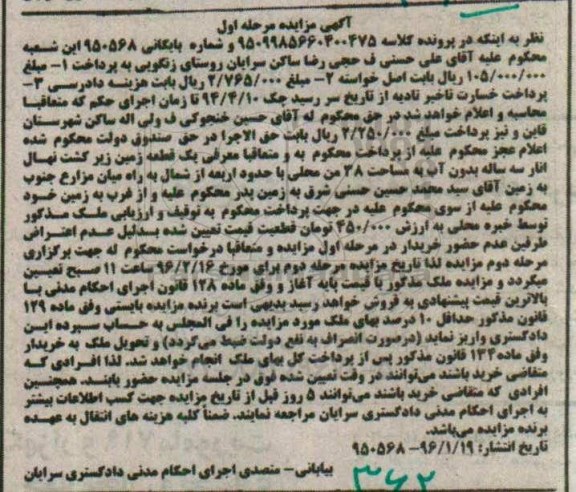 آگهی مزایده مرحله اول
نظر به اینکه در پرونده کلاسه ۹۵۰۹۹۸۵۶۶۰۴۰۰۴۷۵ و شماره بایگانی ۹۵۰۵۶۸ این شعبه
محکوم علیه آقای علی حسنی ف حجی رضا ساکن سرایان روستای زنگویی به پرداخت ۱- مبلغ
۱۰۵/۰۰۰/۰۰۰ ریال بابت اصل خواسته ۲- مبلغ ۲/۷۶۵/۰۰۰ ریال بابت هزینه دادرسی ۳-
پرداخت خسارت تاخیر تادیه از تاریخ سر رسید چک ۹۴/۴/۱۰ تا زمان اجرای حکم که متعاقبا
محاسبه و اعلام خواهد شد در حق محکوم له آقای حسین خنجوکی ف ولی اله ساکن شهرستان
قاین و نیز پرداخت مبلغ ۲/۲۵۰/۰۰۰ ریال بابت حق الاجرا در حق صندوق دولت محکوم شده
اعلام عجز محکوم علیه از پرداخت محکوم به و متعاقبا معرفی یک قطعه زمین زیر کشت نهال
انار سه ساله بدون آب به مساحت ۳۸ من محلی با حدود اربعه از شمال به راه میان مزارع جنوب
به زمین آقای سید محمد حسین حسنی شرق به زمین پدر محکوم علیه و از غرب به زمین خود
محکوم علیه از سوی محکوم علیه در جهت پرداخت محکوم به توقیف و ارزیابی ملک مذکور
توسط خبره محلی به ارزش ۴۵۰/۰۰۰ تومان قطعیت قیمت تعیین شده بدلیل عدم اعتراض
طرفین عدم حضور خریدار در مرحله اول مزایده و متعاقبا درخواست محکوم له جهت برگزاری
مرحله دوم مزایده لذا تاریخ مزایده مرحله دوم برای مورخ ۹۶/۲/۱۶ ساعت ۱۱ صبح تعیین
میگردد و مزایده ملک مذکور با قیمت پایه آغاز و وفق ماده ۱۲۸ قانون اجرای احکام مدنی با
بالاترین قیمت پیشنهادی به فروش خواهد رسید بدیهی است برنده مزایده بایستی وفق ماده ۱۲۹
قانون مذکور حداقل ۱۰ درصد بهای ملک مورد مزایده را فی المجلس به حساب سپرده این
دادگستری واریز نماید (درصورت انصراف به نفع دولت ضبط می‌گردد) و تحویل ملک به خریدار
وفق ماده ۱۳۳ قانون مذکور پس از پرداخت کل بهای ملک انجام خواهد شد. لذا افرادی که
متقاضی خرید باشند می‌توانند در وقت تعیین شده فوق در جلسه مزایده حضور یابند. همچنین
افرادی که متقاضی خرید باشند می‌توانند ۵ روز قبل از تاریخ مزایده جهت کسب اطلاعات بیشتر
به اجرای احکام مدنی دادگستری سرایان مراجعه نمایند. ضمناً کلیه هزینه های انتقال به عهده
برنده مزایده می‌باشد.
تاریخ انتشار: ۹۶/۱/۱۹- ۹۵۰۵۶۸
بیابانی- متصدی اجرای احکام مدنی دادگستری سرایان